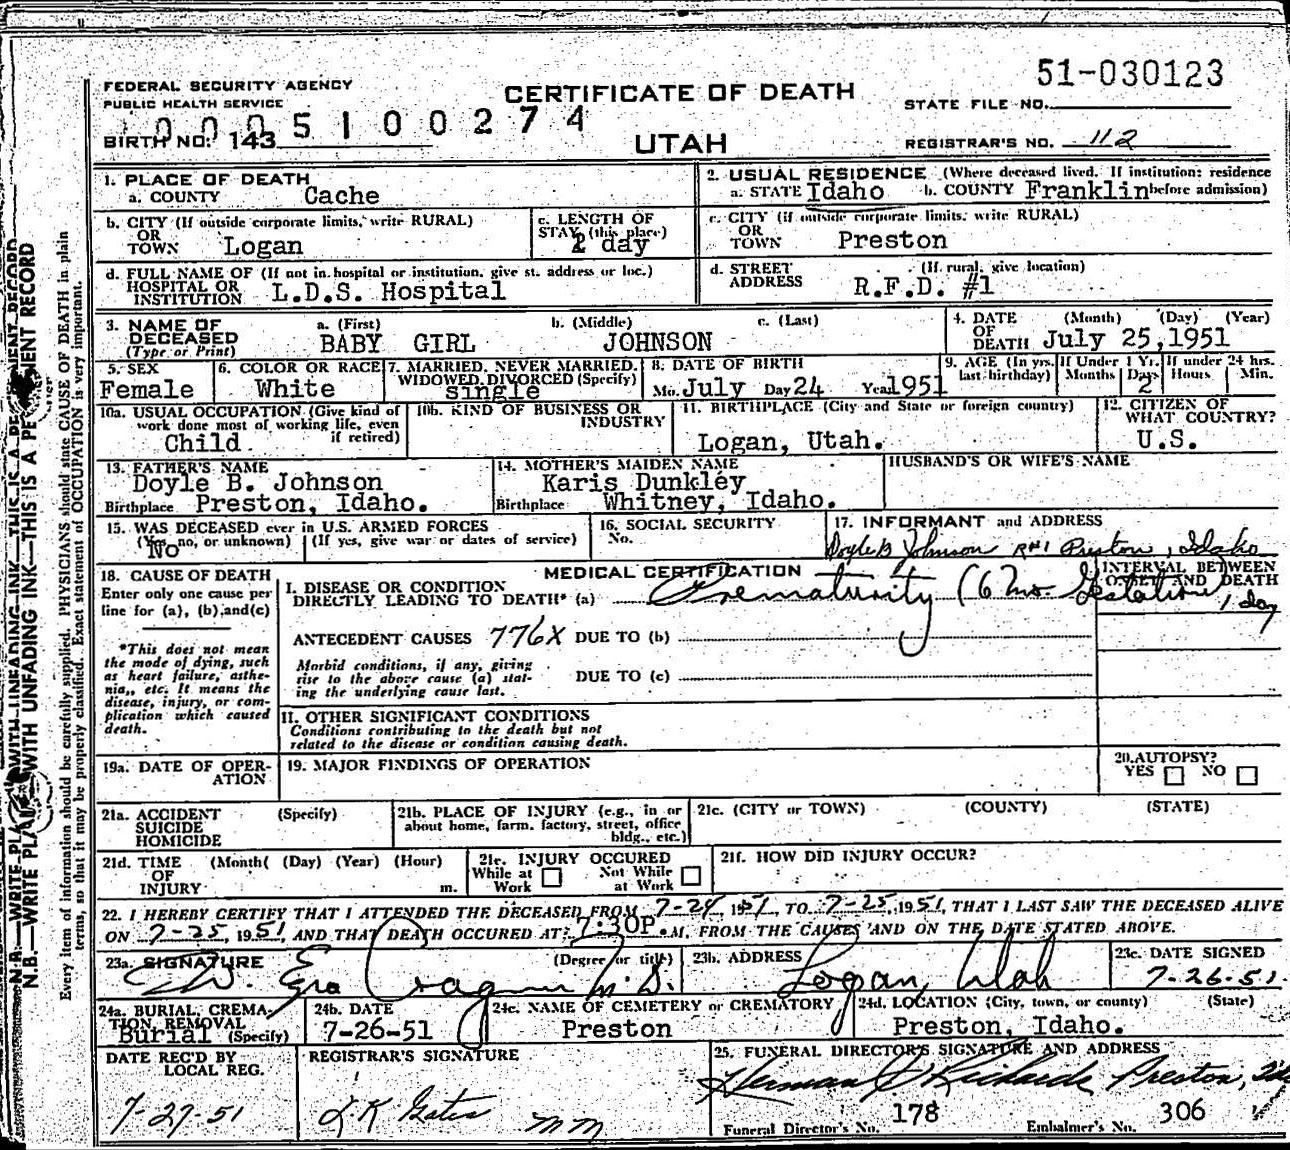 51-030123
FEDERAL SECURITY AGENCY
PUBLIC HEALTH SERVICE
CERTIFICATE OF DEATH
STATE FILE NO.
0005100274
BIRTH NO. 143
UTAH
REGISTRAR'S NO. 112
1. PLACE OF DEATH
a. COUNTY Cache
2. USUAL RESIDENCE (Where deceased lived. If institution: residence before admission)
a. STATE Idaho b. COUNTY Franklin
b. CITY (If outside corporate limits, write RURAL)
OR
TOWN Logan
c. LENGTH OF
STAY (this place)
2 day
c. CITY (if outside corporate limits, write RURAL)
OR
TOWN Preston
d. FULL NAME OF (If not in hospital or institution, give st. address or loc.)
HOSPITAL OR
INSTITUTION L.D.S. Hospital
d. STREET (If rural, give location)
ADDRESS R.F.D. #1
3. NAME OF DECEASED (Type or Print)
a. (First) b. (Middle) c. (Last)
BABY GIRL JOHNSON
4. DATE OF DEATH (Month) (Day) (Year)
July 25, 1951
5. SEX
Female
6. COLOR OR RACE
White
7. MARRIED, NEVER MARRIED, WIDOWED, DIVORCED (Specify)
single
8. DATE OF BIRTH
Mo. July Day 24 Year 1951
9. AGE (In yrs. last birthday)
If Under 1 Yr. Months Days 2
If under 24 hrs. Hours Min.
10a. USUAL OCCUPATION (Give kind of work done most of working life, even if retired)
Child
10b. KIND OF BUSINESS OR INDUSTRY
11. BIRTHPLACE (City and State or foreign country)
Logan, Utah.
12. CITIZEN OF WHAT COUNTRY?
U.S.
13. FATHER'S NAME
Doyle B. Johnson
Birthplace Preston, Idaho.
14. MOTHER'S MAIDEN NAME
Karis Dunkley
Birthplace Whitney, Idaho.
HUSBAND'S OR WIFE'S NAME
15. WAS DECEASED ever in U.S. ARMED FORCES
(Yes, no, or unknown) (If yes, give war or dates of service)
No
16. SOCIAL SECURITY
No.
17. INFORMANT and ADDRESS
Doyle B Johnson R#1 Preston, Idaho
18. CAUSE OF DEATH
Enter only one cause per line for (a), (b), and (c)
*This does not mean the mode of dying, such as heart failure, asthenia, etc. It means the disease, injury, or complication which caused death.
MEDICAL CERTIFICATION
INTERVAL BETWEEN ONSET AND DEATH
I. DISEASE OR CONDITION
DIRECTLY LEADING TO DEATH* (a) Prematurity (6 mo. Gestation) 1 day
ANTECEDENT CAUSES 776X DUE TO (b)
Morbid conditions, if any, giving rise to the above cause (a) stating the underlying cause last.
DUE TO (c)
II. OTHER SIGNIFICANT CONDITIONS
Conditions contributing to the death but not related to the disease or condition causing death.
19a. DATE OF OPERATION
19. MAJOR FINDINGS OF OPERATION
20. AUTOPSY?
YES NO
21a. ACCIDENT SUICIDE HOMICIDE (Specify)
21b. PLACE OF INJURY (e.g., in or about home, farm, factory, street, office bldg., etc.)
21c. (CITY or TOWN) (COUNTY) (STATE)
21d. TIME OF INJURY (Month( (Day) (Year) (Hour) m.
21e. INJURY OCCURED
While at Work Not While at Work
21f. HOW DID INJURY OCCUR?
22. I HEREBY CERTIFY THAT I ATTENDED THE DECEASED FROM 7-24, 1951, TO 7-25, 1951, THAT I LAST SAW THE DECEASED ALIVE
ON 7-25, 1951, AND THAT DEATH OCCURED AT: 7:30P.M. FROM THE CAUSES AND ON THE DATE STATED ABOVE.
23a. SIGNATURE (Degree or title)
W. Ezra Cragun M.D.
23b. ADDRESS
Logan, Utah
23c. DATE SIGNED
7-26-51
24a. BURIAL, CREMATION, REMOVAL (Specify)
Burial
24b. DATE
7-26-51
24c. NAME OF CEMETERY or CREMATORY
Preston
24d. LOCATION (City, town, or county) (State)
Preston, Idaho.
DATE REC'D BY LOCAL REG.
7-27-51
REGISTRAR'S SIGNATURE
mm
25. FUNERAL DIRECTOR'S SIGNATURE AND ADDRESS
Preston,
178 306
Funeral Director's No. Embalmer's No.
N.B.—WRITE PLAINLY WITH UNFADING INK—THIS IS A PERMANENT RECORD
Every item of information should be carefully supplied. PHYSICIANS should state CAUSE OF DEATH in plain
terms, so that it may be properly classified. Exact statement of OCCUPATION is very important.